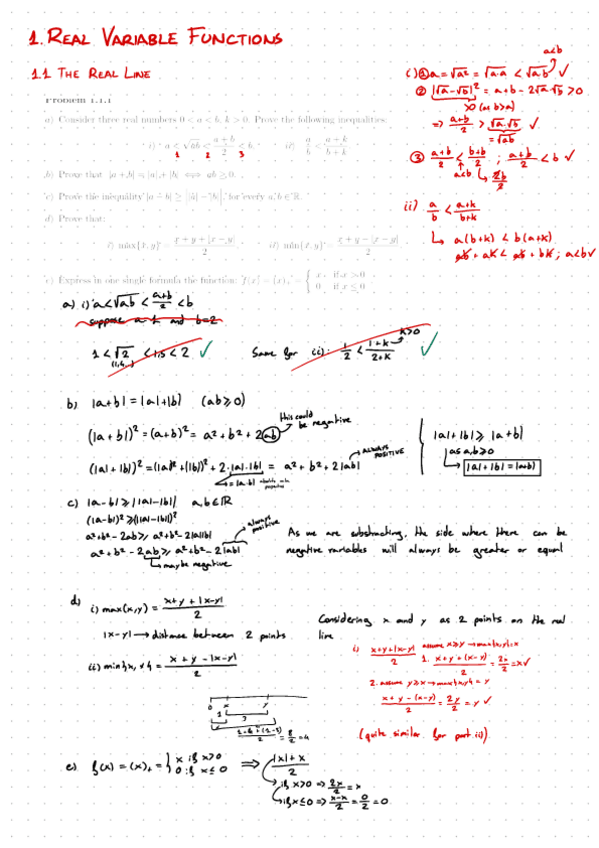 1. REAL VARIABLE FUNCTIONS
1.1 THE REAL LINE
Problem 1.1.1
a) Consider three real numbers 0 < a < b, k > 0. Prove the following inequalities:
i) a < √ab < (a+b)/2 < b, ii) a/b < (a+k)/(b+k)
1 2 3
b) Prove that |a + b| = |a| + |b| ⟺ ab ≥ 0.
c) Prove the inequality |a − b| ≥ ||a| − |b||, for every a, b ∈ ℝ.
d) Prove that:
i) max{x, y} = (x + y + |x − y|)/2 ii) min{x, y} = (x + y − |x − y|)/2
e) Express in one single formula the function: f(x) = (x)₊ = { x if x > 0
0 if x ≤ 0
a<b
i) ① a = √a² = √a·a < √a·b ✓
② |√a−√b|² = a+b − 2√a·√b > 0
>0 (as b>a)
⇒ (a+b)/2 > √a·√b ✓
= √ab
③ (a+b)/2 < (b+b)/2 ; (a+b)/2 < b ✓
a<b 2b/2
ii) a/b < (a+k)/(b+k)
↳ a(b+k) < b(a+k)
ab + ak < ab + bk ; a<b ✓
a) i) a < √ab < (a+b)/2 < b
suppose a=1 and b=2
1 < √2 < 1,5 < 2 ✓ Same for ii): 1/2 < (1+k)/(2+k) k>0 ✓
(1,4...)
b) |a+b| = |a|+|b| (ab ≥ 0)
this could be negative
(|a+b|)² = (a+b)² = a² + b² + 2ab
(|a|+|b|)² = (|a|)² + (|b|)² + 2·|a|·|b| = a² + b² + 2|ab|
→ ALWAYS POSITIVE
= |a·b|
|a|+|b| ≥ |a+b|
as a,b ≥ 0
↳ |a|+|b| = |a+b|
c) |a−b| ≥ ||a|−|b|| a,b ∈ ℝ
(|a−b|)² ≥ (||a|−|b||)²
a²+b² − 2ab ≥ a²+b² − 2|a||b|
a²+b² − 2ab ≥ a²+b² − 2|ab|
always positive
↳ maybe negative
As we are substracting, the side where there can be
negative variables will always be greater or equal
d) i) max(x,y) = (x+y+|x−y|)/2
|x−y| → distance between 2 points
ii) min{x,y} = (x + y − |x−y|)/2
Considering x and y as 2 points on the real
line
i) (x+y+|x−y|)/2 assume x≥y → max{x,y}=x
1. (x+y+(x−y))/2 = 2x/2 = x ✓
2. assume y≥x → max{x,y} = y
(x+y − (x−y))/2 = 2y/2 = y ✓
(quite similar for part ii))
0 x y
= 8/2 = 4
e) f(x) = (x)₊ = { x if x>0
0 if x≤0 ⇒ (|x|+x)/2
→ if x>0 ⇒ 2x/2 = x
→ if x≤0 ⇒ (x−x)/2 = 0/2 = 0